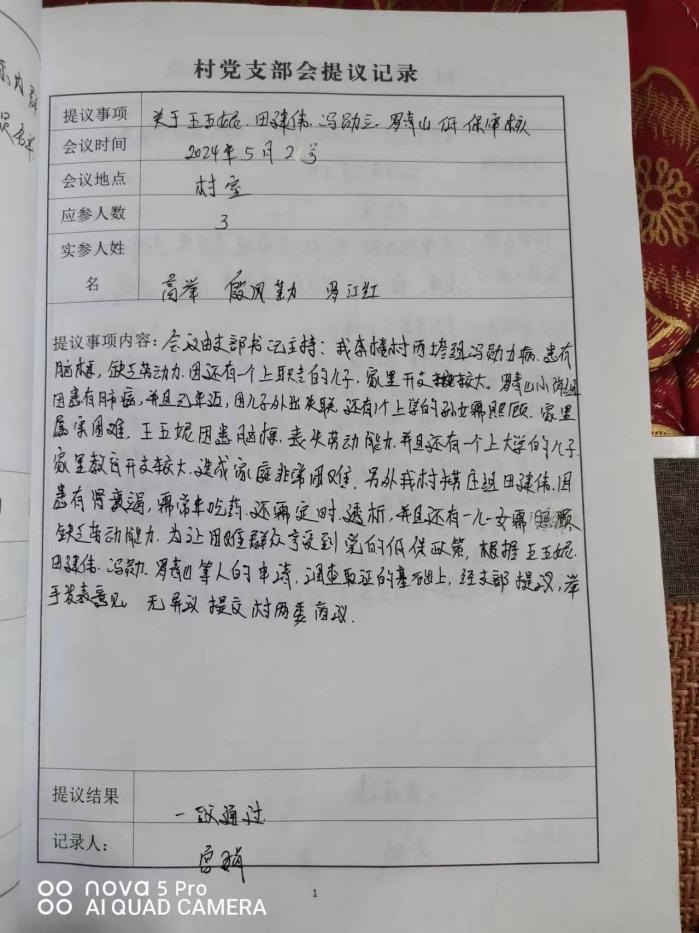 村党支部会提议记录
提议事项 关于王玉妮、田建伟、冯勋立、罗寿山低保审核
会议时间 2024年5月2号
会议地点 村室
应参人数 3
实参人姓
名 高举 殷风勤 罗江红
提议事项内容：会议由支部书记主持：我李楼村西 组冯勋力病，患有
脑梗，缺乏劳动力，因还有一个上职专的儿子，家里开支 较大。罗寿山小 组
因患有肺病，并且已年迈，因儿子外出失联，还有1个上学的孙女需照顾，家里
属实困难，王玉妮因患脑梗，丧失劳动能力，并且还有一个上大学的儿子，
家里教育开支较大，造成家庭非常困难，另外我村 庄组田建伟，因
患有肾衰竭，需常年吃药，还需定时透析，并且还有一儿一女需照顾
缺乏劳动能力，为让困难群众享受到党的低保政策，根据王玉妮、
田建伟、冯勋 、罗寿山等人的申请，调查取证的基础上，经支部提议，举
手发表意见 无异议 提交村两委商议。
提议结果 一致通过
记录人：
1
nova 5 Pro
AI QUAD CAMERA